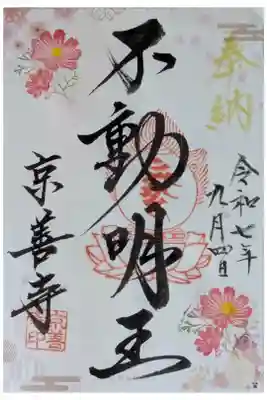 奉納
令和七年
九月四日
不動明王
京善寺
京善寺印